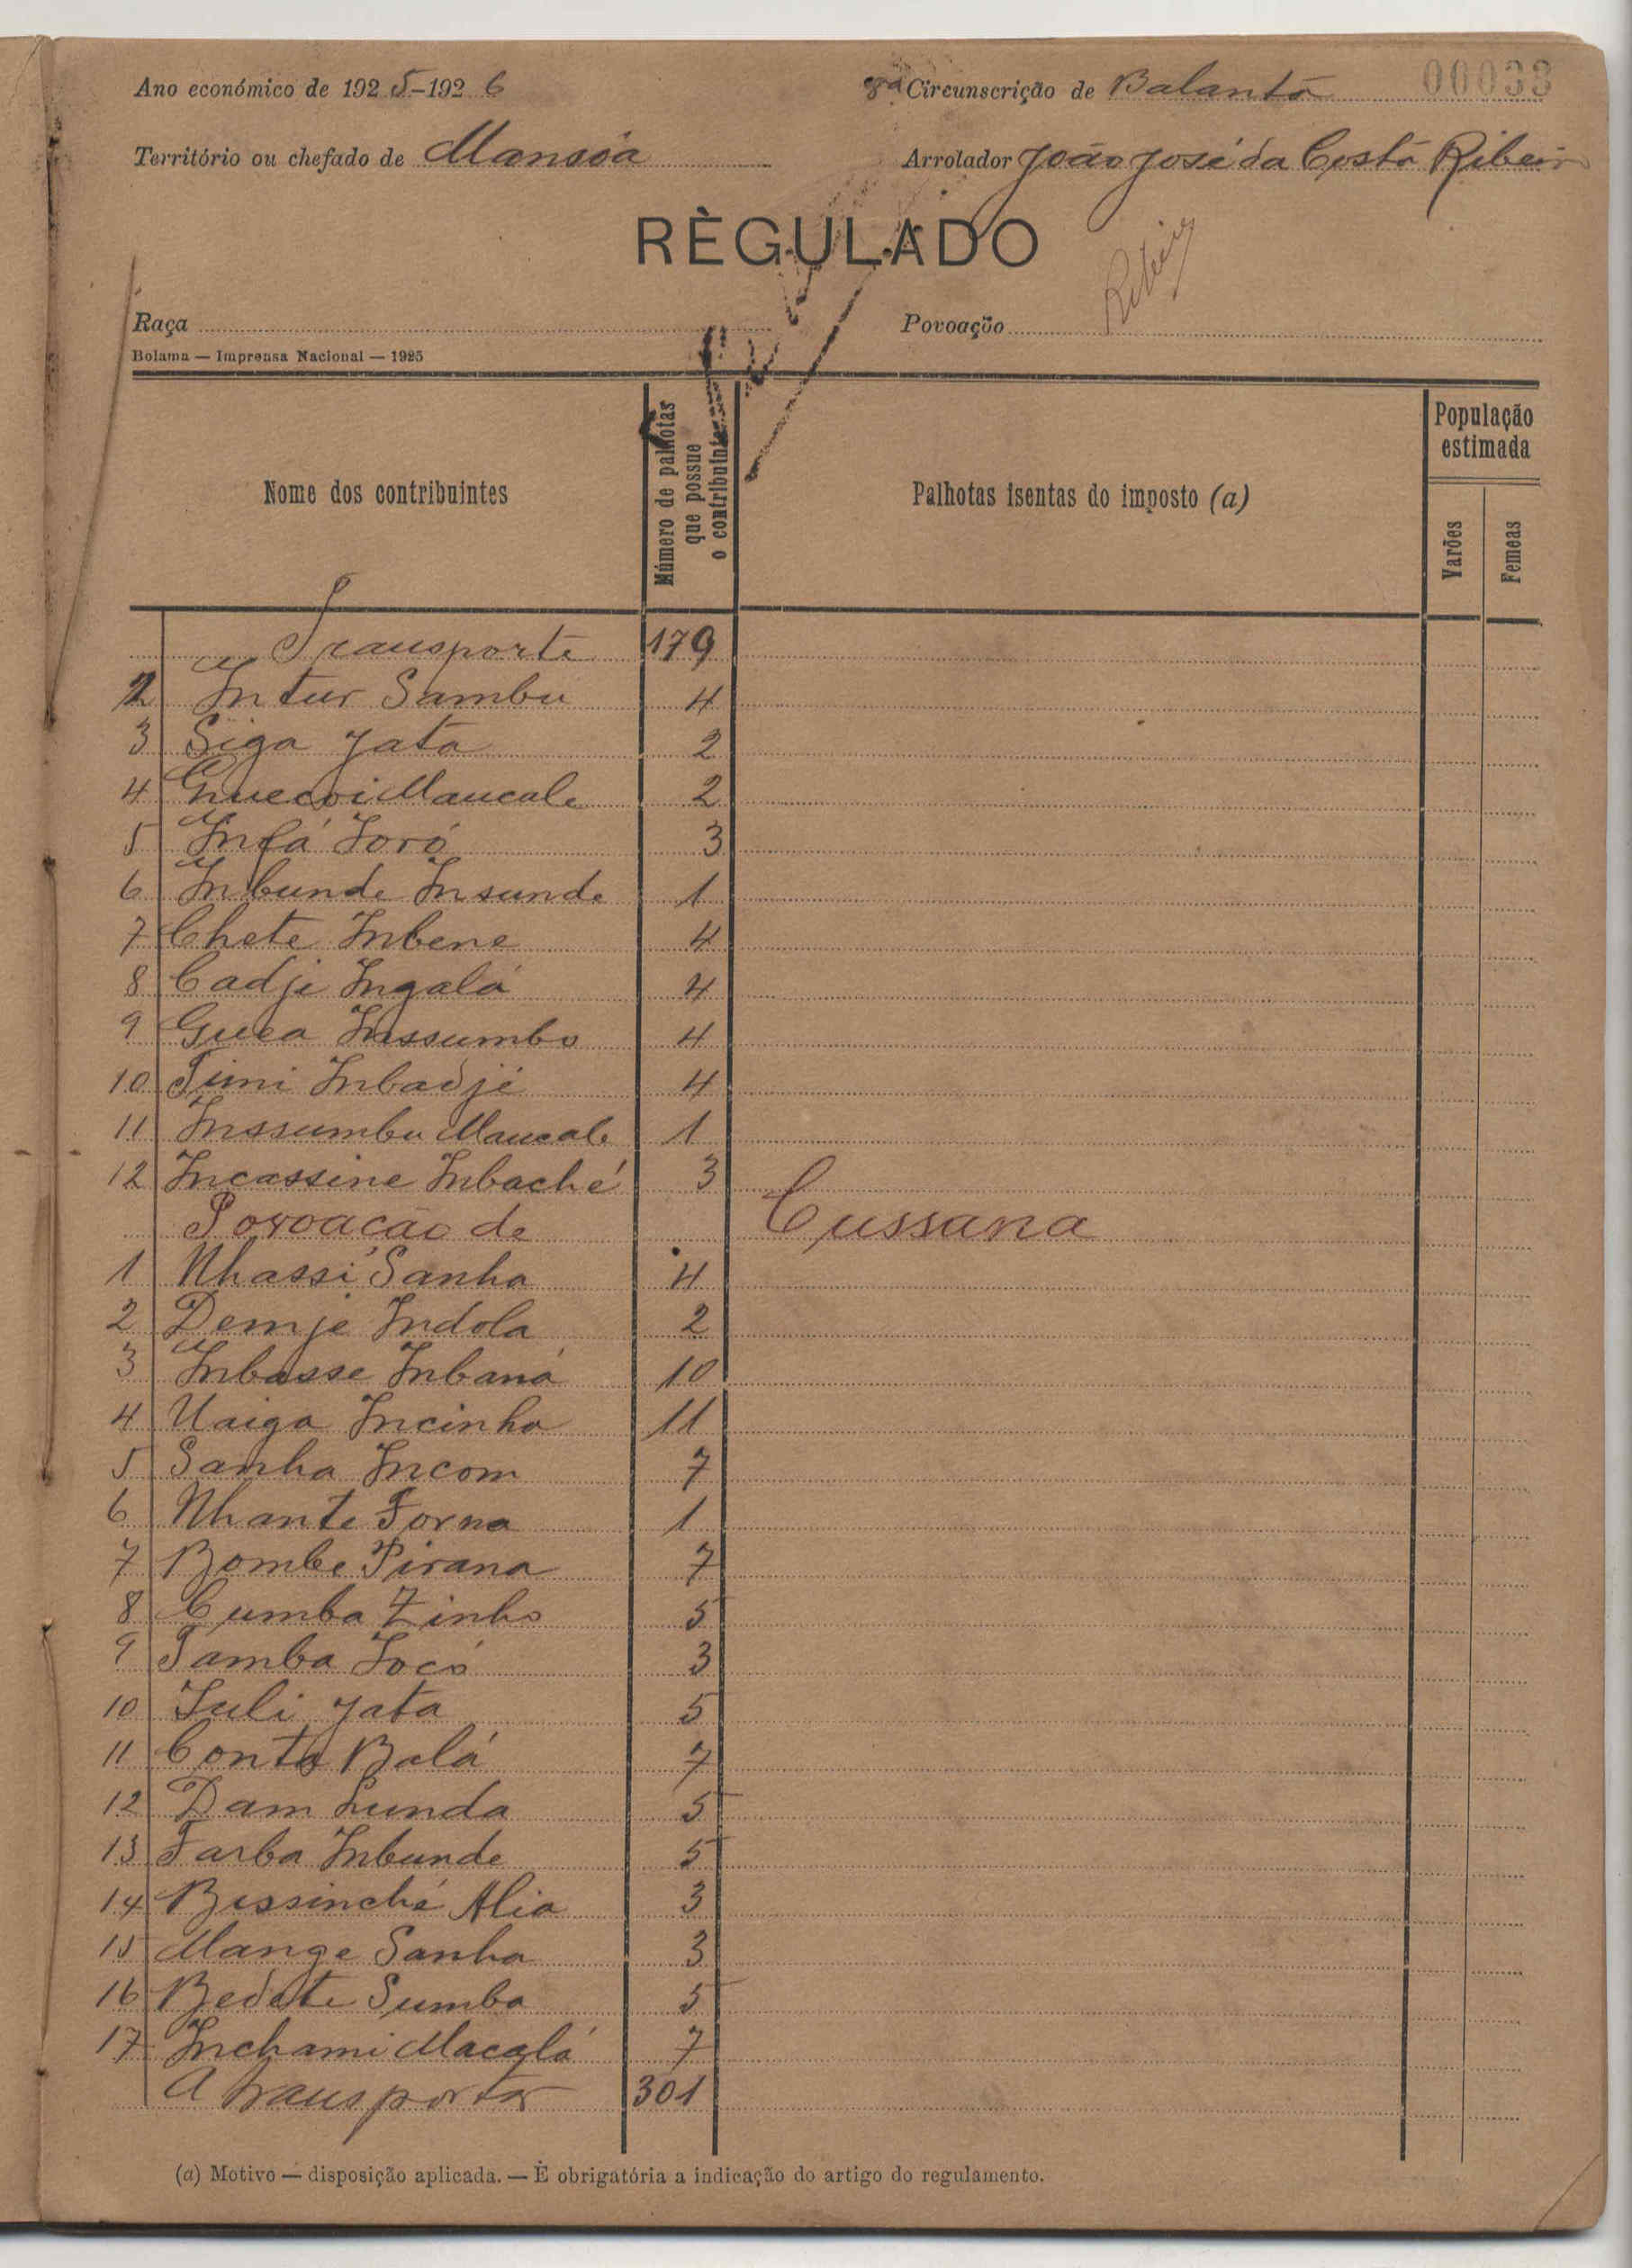 Ano económico de 1925-1926
8ª Circunscrição de Balanta
00033
Território ou chefado de Mansôa
Arrolador João José da Costa Ribeiro
RÈGULADO
Ribeiro
Raça
Povoação
Bolama — Imprensa Nacional — 1925
Nome dos contribuintes
Número de palhotas que possue o contribuinte
Palhotas isentas do imposto (a)
População estimada
Varões
Femeas
Transporte 179
2 Intur Sambu 4
3 Siga Jata 2
4 Guecoi Maucale 2
5 Infá Joró 3
6 Inbunde Insunde 1
7 Chete Inbene 4
8 Cadji Ingalá 4
9 Guea Inssumbo 4
10 Timi Inbadjé 4
11 Inssumbu Maucale 1
12 Incassine Inbaché 3
Povoação de Cussana
1 Nhassi Sanha 4
2 Demje Indola 2
3 Inbasse Inbaná 10
4 Uaiga Incinha 11
5 Sanha Incom 7
6 Nhante Forna 1
7 Bombe Pirana 7
8 Cumba Zinho 5
9 Tamba Jocó 3
10 Juli Jata 5
11 Conta Balá 7
12 Dam Lunda 5
13 Farba Inbunde 5
14 Bissinché Alia 3
15 Mange Sanha 3
16 Bedete Sumba 5
17 Inchami Macalá 7
A transportar 301
(a) Motivo — disposição aplicada. — È obrigatória a indicação do artigo do regulamento.